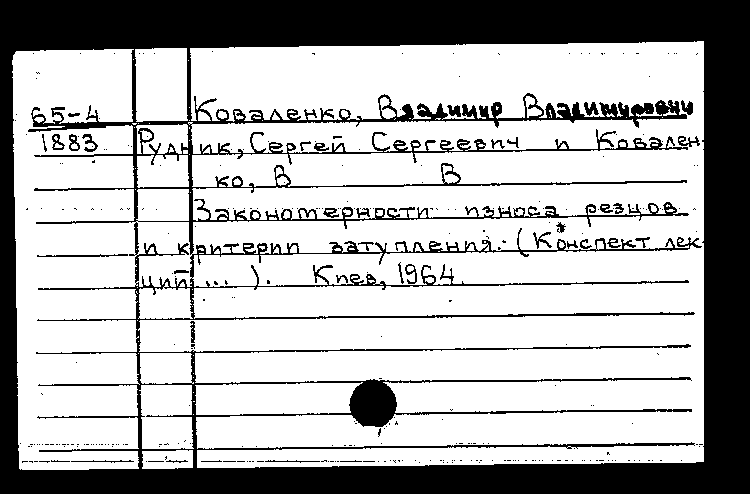 65-4 Коваленко, Владимир Владимирович
1883 Рудник, Сергей Сергеевич и Ковален-
ко, В В
Закономерности износа резцов
и критерии затупления. (Конспект лек-
ций ... ). Киев, 1964.